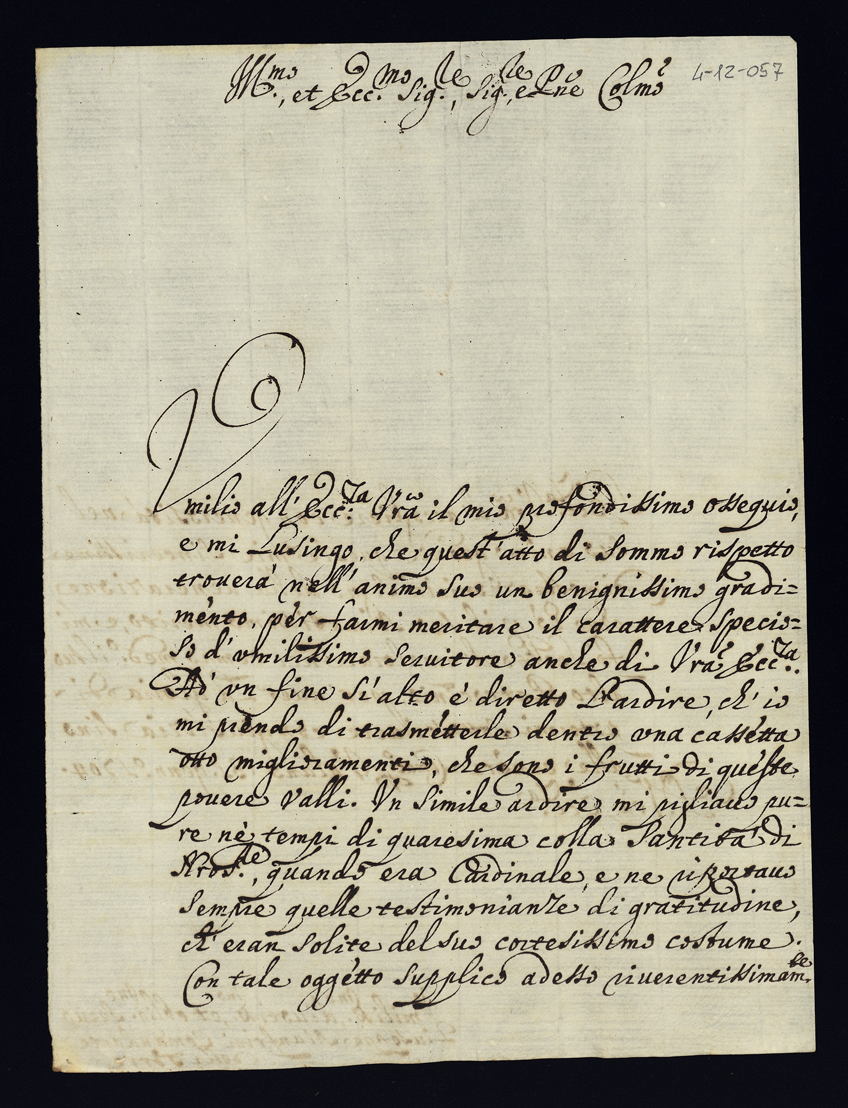 Ill.mo, et Ecc.mo Sig.re, Sig.re, e Pne Colmo
4-12-057
Vmilio all' Ecc.za Vrã il mio profondissimo ossequio,
e mi Lusingo, che quest'atto di sommo rispetto
trouerà nell'animo suo un benignissimo gradi=
mento, per farmi meritare il carattere specio=
so d'vmilissimo seruitore anche di Vrã Ecc.za.
Ad vn fine sì alto è diretto L'ardire, ch'io
mi prendo di trasmetterle dentro vna cassetta
otto miglioramenti, che sono i frutti di queste
pouere Valli. Vn simile ardire mi pigliauo pu=
re nè tempi di quaresima colla Santità di
Nro S.re, quando era Cardinale, e ne riportauo
sempre quelle testimonianze di gratitudine,
ch'eran solite del suo cortesissimo costume.
Con tale oggetto supplico adesso riuerentissimam.te